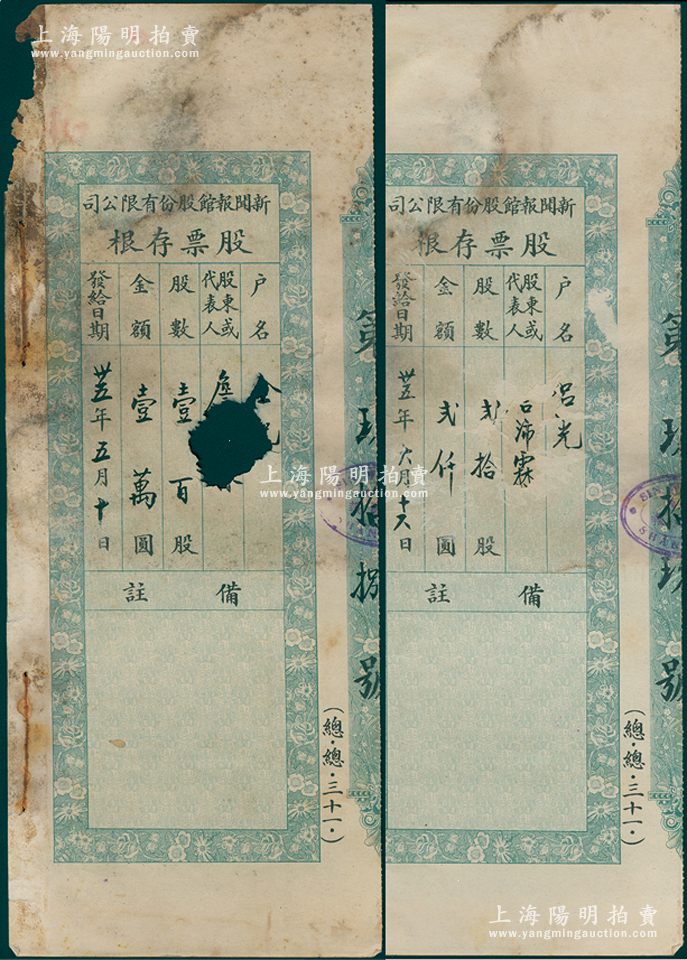 上海陽明拍賣
www.yangmingauction.com
新聞報館股份有限公司
股票存根
户名
股東或代表人
股數 壹百股
金額 壹萬圓
發給日期 卅五年五月十日
備註
第玖拾捌號
(總·總·三十一·)
上海陽明拍賣
www.yangmingauction.com
新聞報館股份有限公司
股票存根
户名 呂光
股東或代表人 沛霖
股數 貳拾股
金額 貳仟圓
發給日期 卅五年六月十六日
備註
第玖拾玖號
(總·總·三十一·)
上海陽明拍賣
www.yangmingauction.com
上海陽明拍賣
www.yangmingauction.com